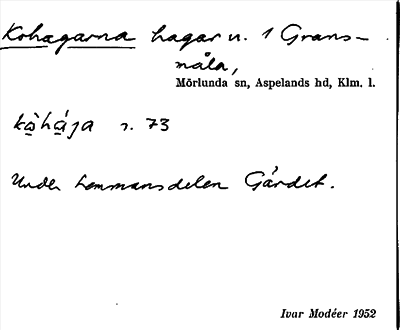 Kohagarna hagar u. 1 Grans-
måla,
Mörlunda sn, Aspelands hd, Klm. l.
kò̱há̱ja r. 73
Under hemmansdelen Gärdet.
Ivar Modéer 1952